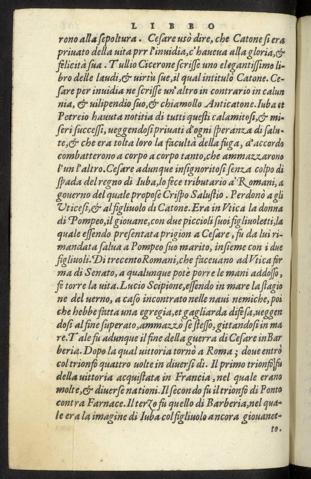 LIBRO
rono alla sepoltura. Cesare usò dire, che Catone si era
privato della vita per l'invidia, c'haveua alla gloria, &
felicità sua. Tullio Cicerone scrisse uno elegantissimo li-
bro delle laudi, & uirtù sue, il qual intitulò Catone. Ce-
sare per inuidia ne scrisse un'altro in contrario in calun
nia, & uilipendio suo, & chiamollo Anticatone. Iuba et
Petreio hauuta notitia di tutti questi calamitosi, & mi-
seri successi, ueggendosi priuati d'ogni speranza di salu-
te, & che era tolta loro la facultà della fuga, d'accordo
combatterono a corpo a corpo tanto, che ammazzarono
l'un l'altro. Cesare adunque insignoritosi senza colpo di
spada del regno di Iuba, lo fece tributario a' Romani, a
gouerno del quale propose Crispo Salustio. Perdonò a gli
Uticesi, & al figliuolo di Catone. Era in Vtica la donna
di Pompeo, il giouane, con due piccioli suoi figliuoletti, la
quale essendo presentata prigion a Cesare, fu da lui ri-
mandata salua a Pompeo suo marito, insieme con i due
figliuoli. Di trecento Romani, che faceuano ad Vtica for
ma di Senato, a qualunque potè porre le mani addosso,
fè torre la uita. Lucio Scipione, essendo in mare la stagio
ne del uerno, a caso incontrato nelle naui nemiche, poi
che hebbe fatta una egregia, et gagliarda difesa, ueggen
dosi al fine superato, ammazzò se stesso, gittandosi in ma
re. Tale fu adunque il fine della guerra di Cesare in Bar
beria. Dopo la qual uittoria tornò a Roma; doue entrò
col trionfo quattro uolte in diuersi dì. Il primo trionfo fu
della uittoria acquistata in Francia, nel quale erano
molte, & diuerse nationi. Il secondo fu il trionfo di Ponto
contra Farnace. Il terzo fu quello di Barberia, nel qua-
le era la imagine di Iuba col figliuolo ancora giouanet-
to.